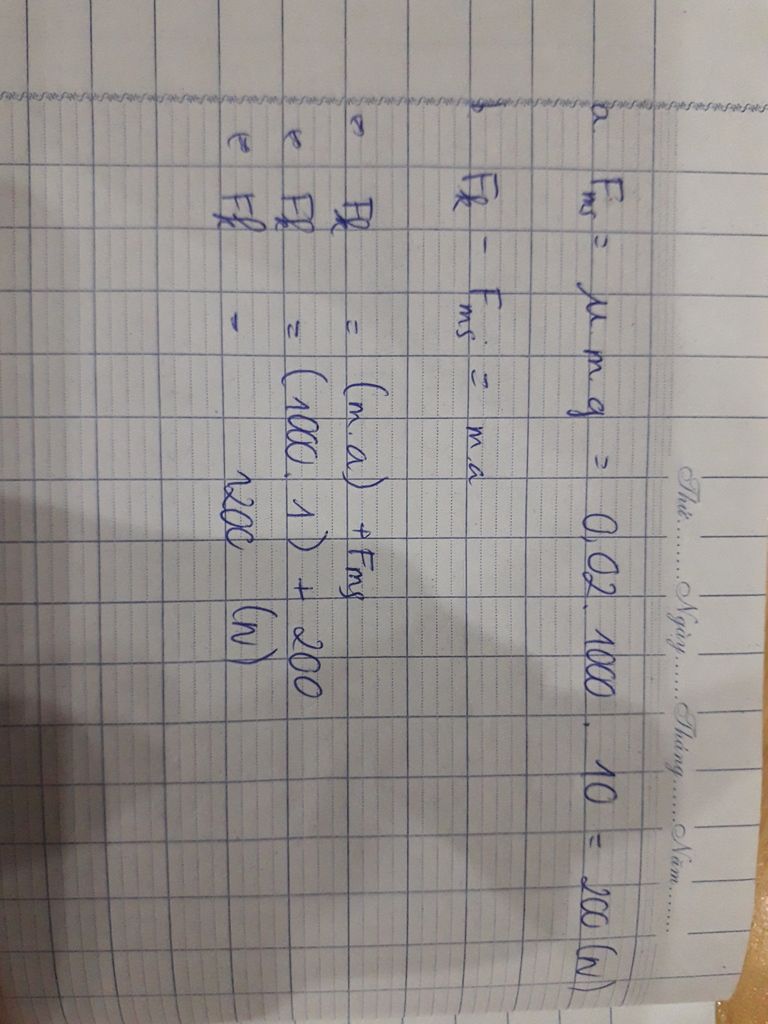 Thứ.........Ngày.......Tháng.......Năm.........
a Fms = μ m g = 0,02. 1000 . 10 = 200 (N)
b Fk - Fms = m.a
⇔ Fk = (m.a) + Fms
⇔ Fk = (1000. 1) + 200
⇔ Fk = 1200 (N)